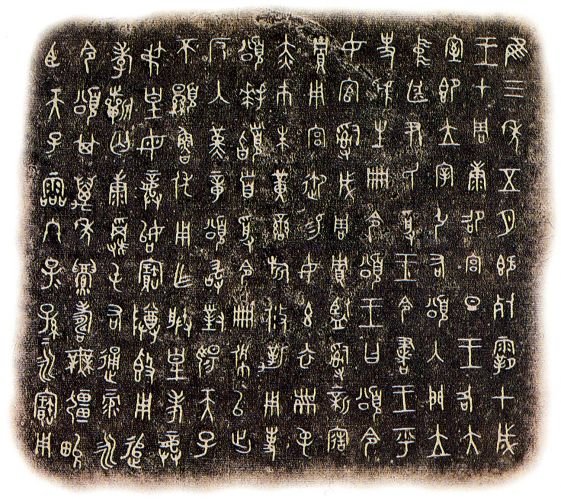 隹三年五月既死霸甲戌
王才周康卲宮旦王各大
室即立宰弘右頌入門立
中廷尹氏受王令書王乎
史虢生冊令頌王曰頌令
女官𤔲成周貯監𤔲新寤
貯用宮御易女玄衣黹屯
赤巿朱黃䜌旂攸勒用事
頌拜𩒨首受令冊佩以出
反入堇章頌敢對揚天子
不顯魯休用乍朕皇考龏
弔皇母龏始寶尊鼎用追
孝𣄨匄康𩁹屯右通彔永
令頌其萬年眉壽無疆畯
臣天子霝冬子=孫=永寶用